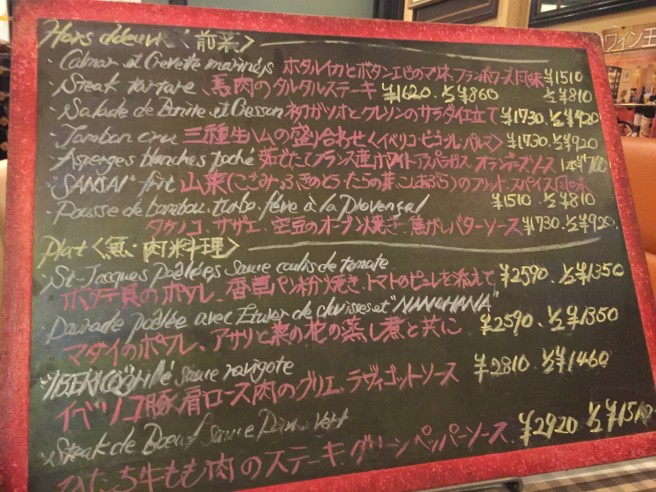 Hors d'œuvre〈前菜〉
・Calmar et Crevette marinés ホタルイカとボタンエビのマリネ、フランボワーズ風味 ¥1510
½ ¥810
・Steak tartare、馬肉のタルタルステーキ ¥1620. ½ ¥860
・Salade de Bonite et Cresson 初ガツオとクレソンのサラダ仕立て ¥1730. ½ ¥920
・Jambon cru 三種生ハムの盛り合わせ ¥1730. ½ ¥920
・Asperges blanches poché 茹でたてフランス産ホワイトアスパラガス オランデーズソース 1本
・"SANSAI" frit 山菜(こごみ、ふきのとう、たらの芽、こしあぶら)のフリット、スパイス風味
¥1510. ½ ¥810
・Pousse de bambou, turbo, fève à la Provençal
タケノコ、サザエ、空豆のオーブン焼き、焦がしバターソース ¥1730. ½ ¥920.
Plat〈魚・肉料理〉
・St-Jacques poêlées Sauce coulis de tomate
ホタテ貝のポワレ、香草パン粉焼き、トマトのピュレを添えて ¥2590. ½ ¥1350
・Daurade poêlée avec Étuver de clovisses et "NANOHANA"
マダイのポワレ、アサリと菜の花の蒸し煮と共に ¥2590. ½ ¥1350
sauce ravigote
イベリコ豚肩ロース肉のグリエ、ラヴィゴットソース ¥2810 ½ ¥1460
・Steak de Bœuf Sauce Poivre vert
ひたち牛もも肉のステーキ、グリーンペッパーソース. ¥2920 ½ ¥1510
ワイン王